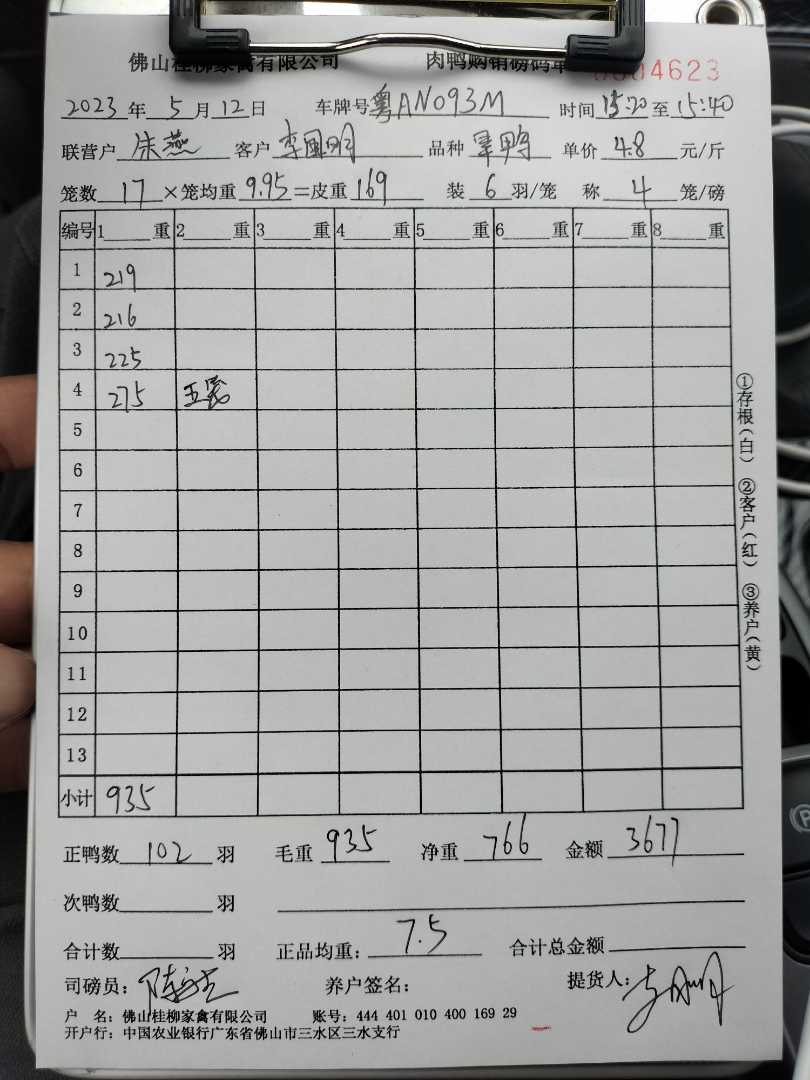 佛山桂柳家禽有限公司 肉鸭购销磅码单 0004623
2023 年 5 月 12 日 车牌号 粤AN093M 时间 15:20 至 15:40
联营户 朱燕 客户 李国明 品种 单价 4.8 元/斤
笼数 17 ×笼均重 9.95 =皮重 169 装 6 羽/笼 称 4 笼/磅
编号 1 重 2 重 3 重 4 重 5 重 6 重 7 重 8 重
1 219
2 216
3 225
4 275 五笼
5
6
7
8
9
10
11
12
13
小计 935
①存根(白) ②客户(红) ③养户(黄)
正鸭数 102 羽 毛重 935 净重 766 金额 3677
次鸭数 羽
合计数 羽 正品均重: 7.5 合计总金额
司磅员: 养户签名: 提货人:
户 名: 佛山桂柳家禽有限公司 账号: 444 401 010 400 169 29
开户行: 中国农业银行广东省佛山市三水区三水支行